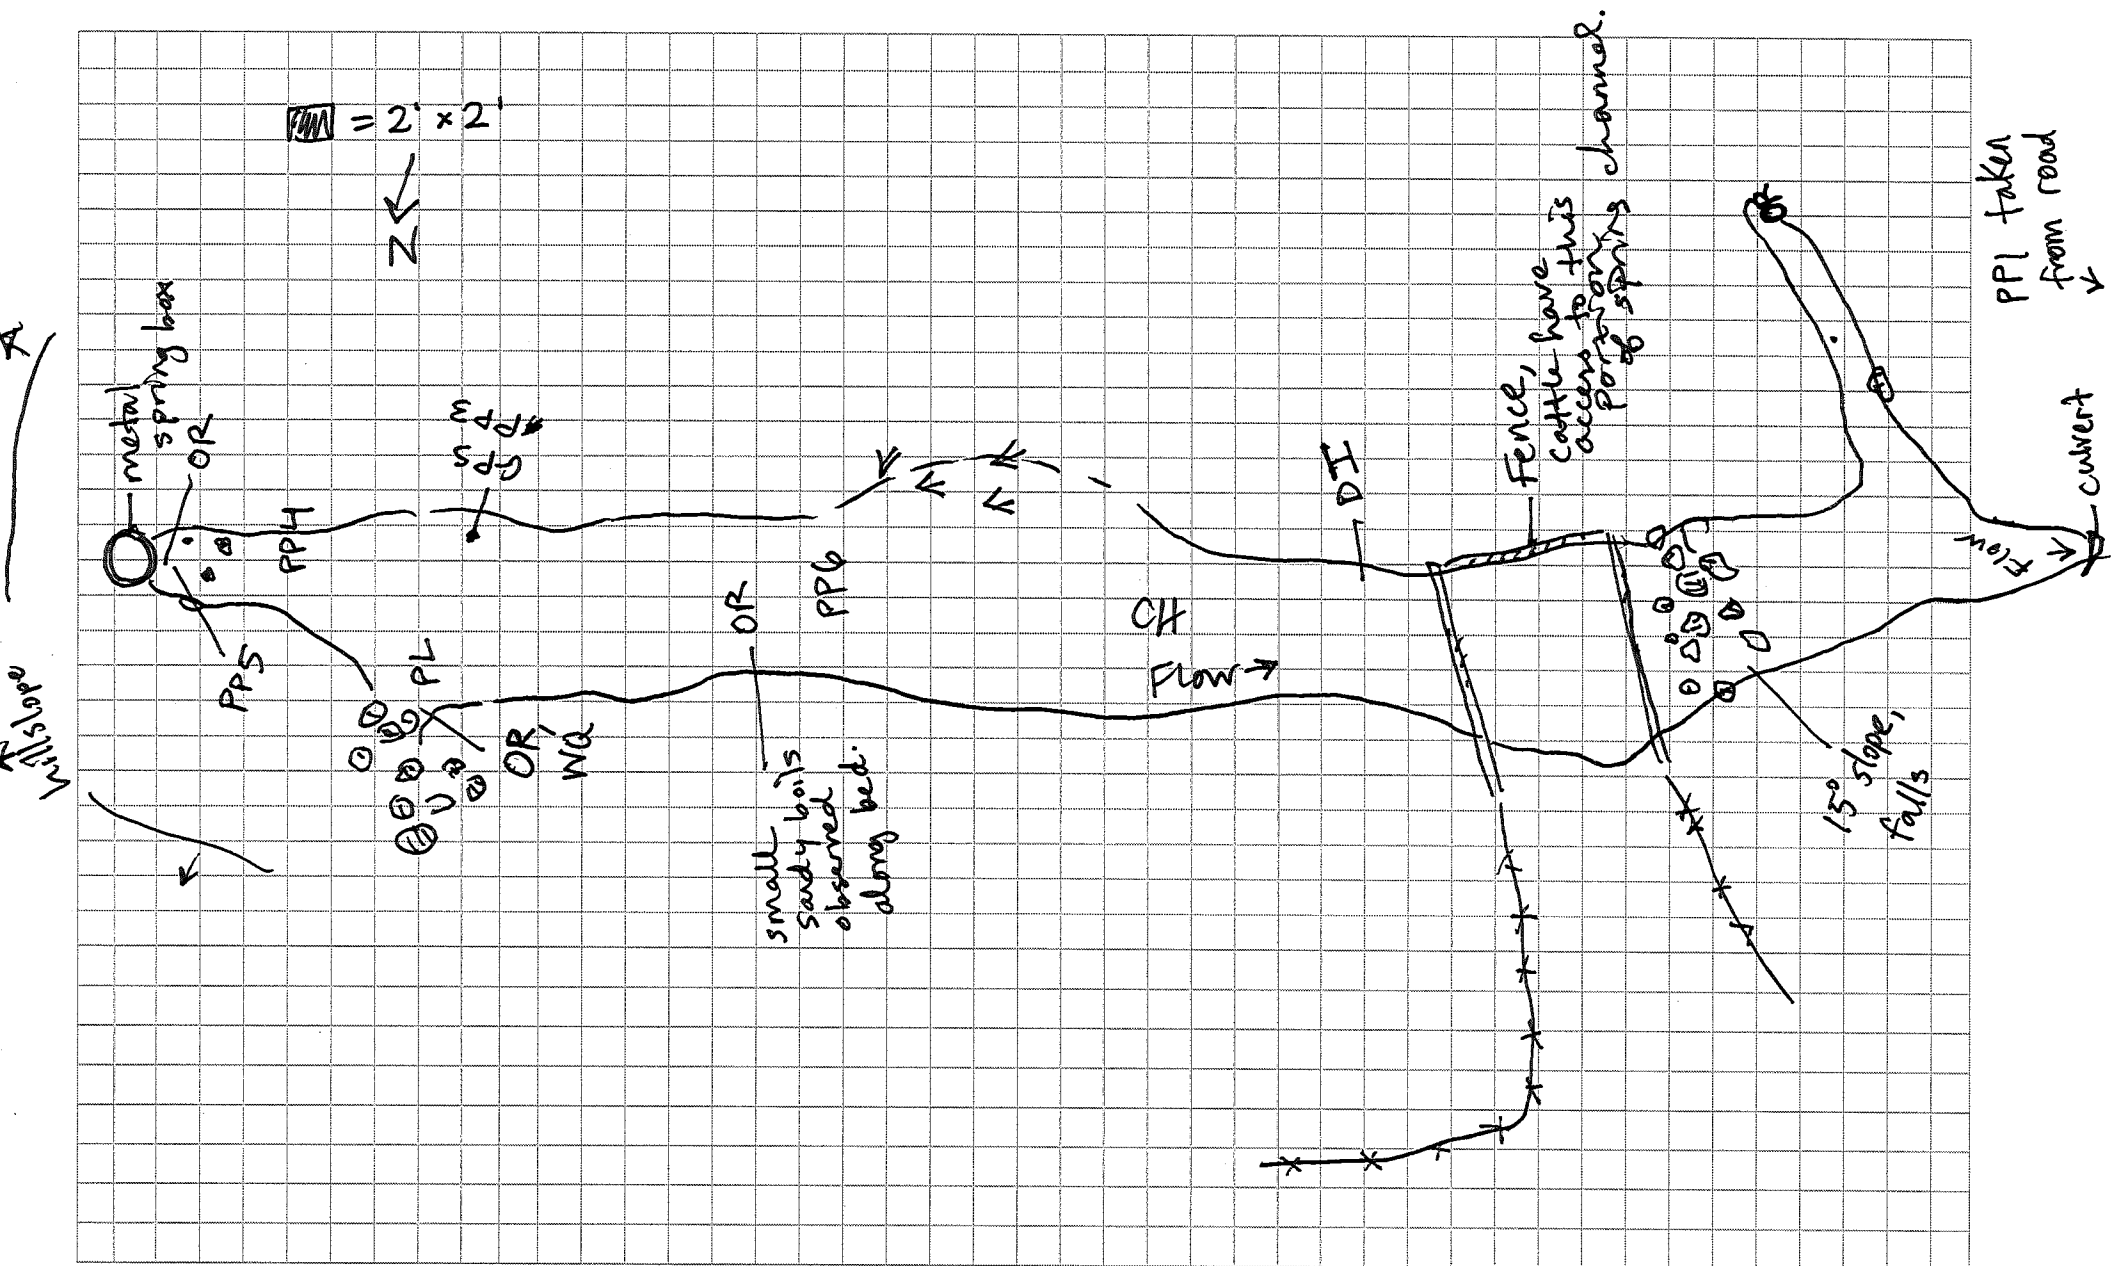 = 2' x 2'
N
metal
spring box
OR
PP4
PP5
hillslope
GPS
PP3
PL
OR,
WQ
OR
small
sandy boils
observed
along bed.
PP6
CH
Flow →
DI
Fence,
cattle have
access to this
portion
of spring channel.
15° slope,
falls
OR
Flow
culvert
PP1 taken
from road